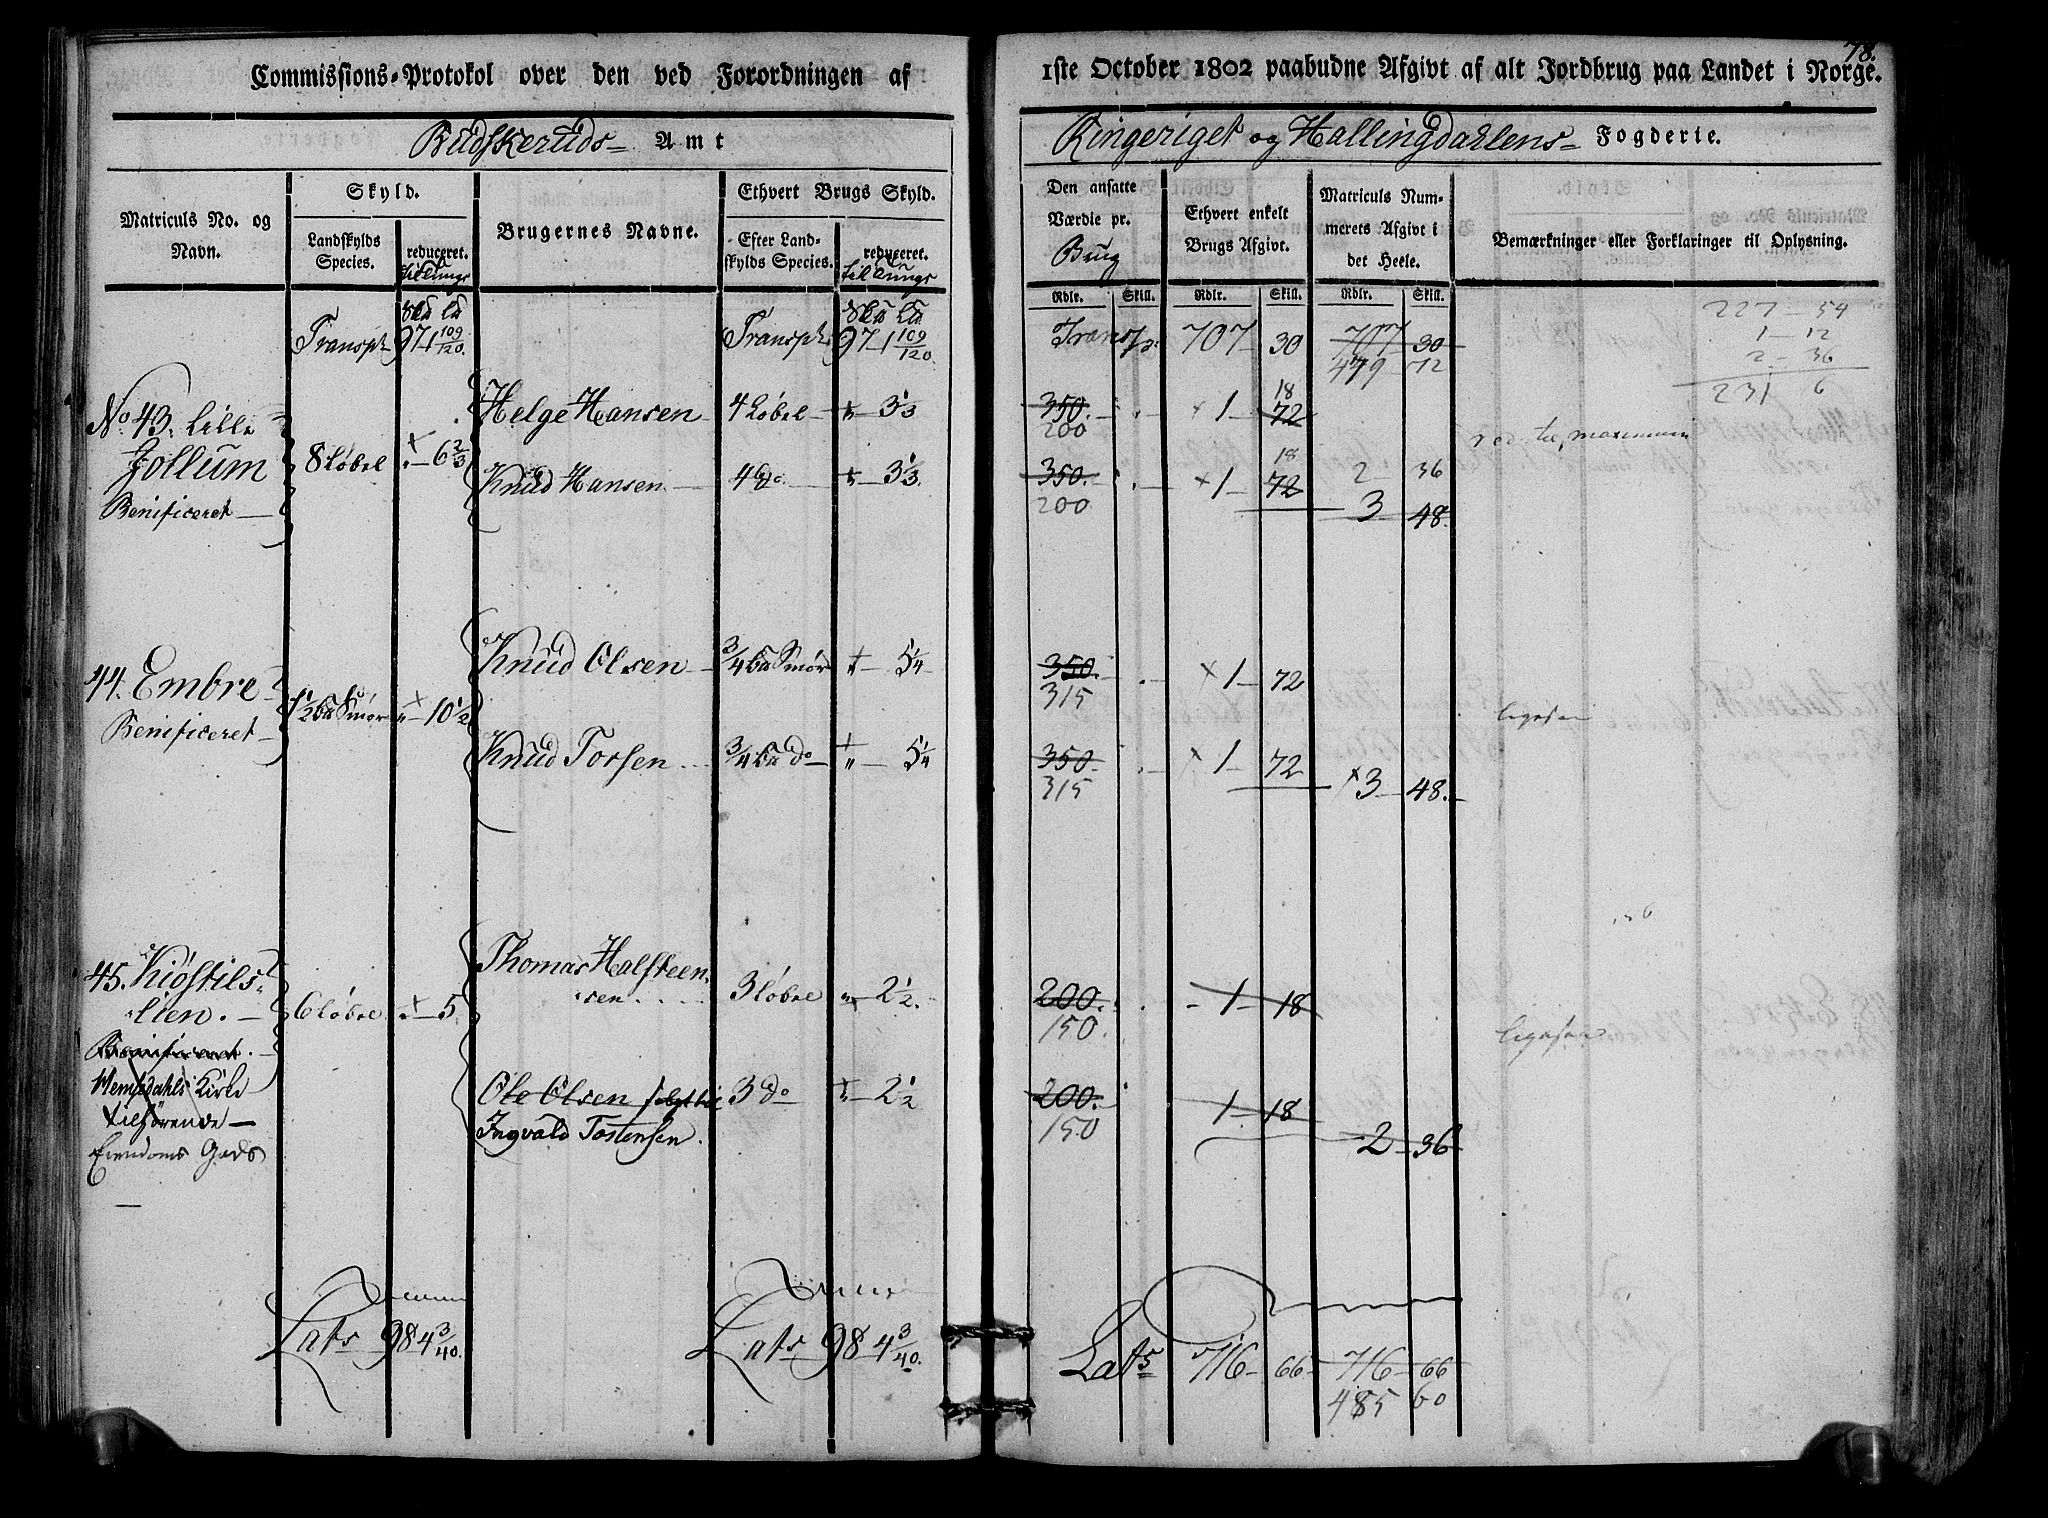 78.
Commissions-Protokol over den ved Forordningen af
1ste October 1802 paabudne Afgivt af alt Jordbrug paa Landet i Norge.
Budskeruds Amt
Ringeriget og Hallingdahlens Fogderie.
Matriculs No. og Navn.
Skyld.
Landskylds Species.
reduceret.
Brugernes Navne.
Ethvert Brugs Skyld.
Efter Landskylds Species.
reduceret.
Den ansatte Værdie pr.
Brug
Ethvert enkelt Brugs Afgivt.
Matriculs Nummerets Afgivt i det Heele.
Bemærkninger eller Forklaringer til Oplysning.
Rdlr. Skill. Rdlr. Skill. Rdlr. Skill.
Transpt 97 1 109/120. Transpt 97 1 109/120. Transp: 707 30 707 30
479 72
227 - 54
1 - 12
2 - 36
231 6
No. 43. Lille 8 Løbel 6 2/3 Helge Hansen 4 Løbel 3 1/3 350. 1 72
18
200
red. til maximum
Jollum
Knud Hansen 4 do 3 1/3. 350. 1 72 2 36
18
Benificeret
200
3 48.
44. Embre 1 1/2 Smør 10 1/2 Knud Olsen 3/4 Smør 5 1/4 350. 1 72
315
Benificeret
ligesaa
Knud Torsen 3/4 do 5 1/4 350. 1 72
315
3 48.
45. Kiøstils-
lien. 6 Løbel 5 Thomas Halsteen
sen 3 Løbel 2 1/2. 200. 1 18
150.
ligesaa
Benificeret.
Hemsedahls Kirke
Ole Olsen 3 do 2 1/2 200. 1 18
tilhørende
Ingvald Tostensen. 150
2 36
Eiendoms Gods
Lats 98 4 3/40. Lats 98 4 3/40. Lats 716 66 716 66
485 60